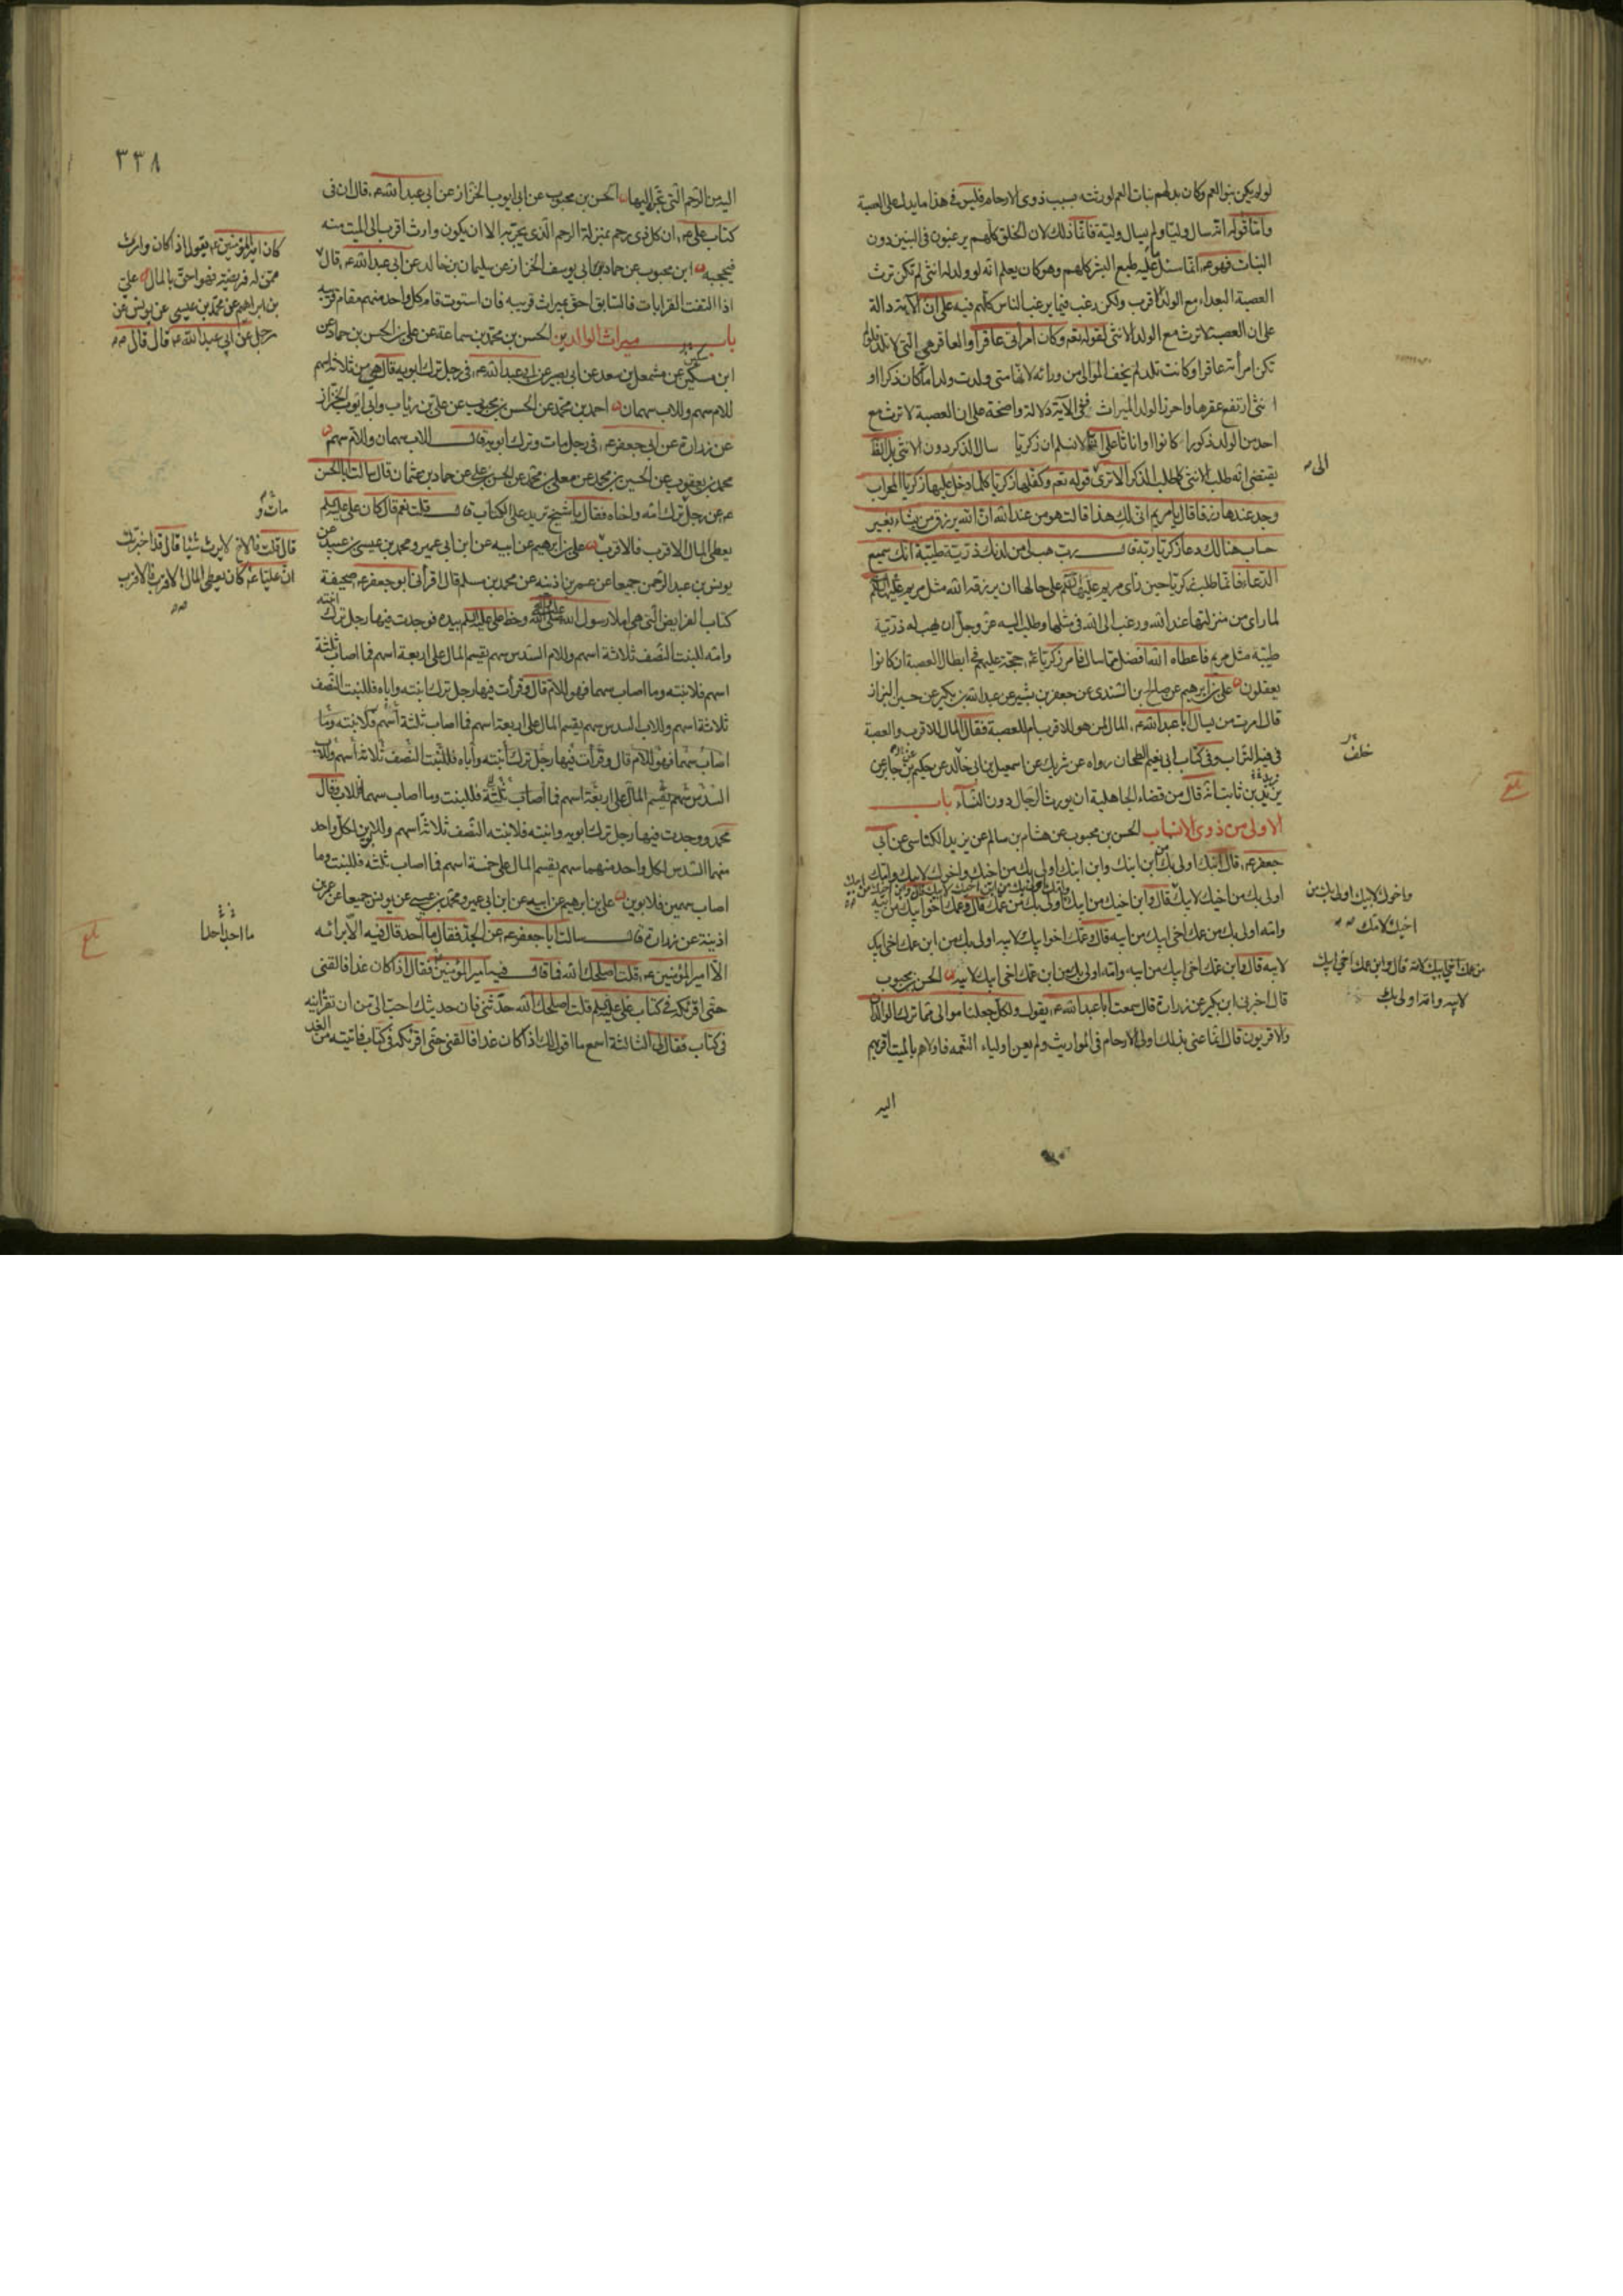 لو لم يكن بنو العم وكان بدلهم بنات العم لورثته بسبب ذوى الارحام فليس فى هذا ما يدل على العصبة
وامّا قولهم انّه سال وليّا ولم يسال وليّة فانّما ذلك لان الخلق كلهم يرغبون فى البنين دون
البنات فهوعم انّما سئل عليه طبع البشر كلهم وهو كان يعلم انّه لو ولد له انثى لم تكن ترث
العصبة البعداء مع الولد الاقرب ولكن رغب فيما يرغب الناس كلهم فيه على ان الآية دالة
على ان العصبة لا ترث مع الولد الانثى لقوله تعم وكان امرأتى عاقرا والعاقر هى التى لا تلد فلو لم
تكن امرأته عاقرا وكانت تلد لم يخف الموالى من ورائه لانّها متى ولدت ولدا ما كان ذكرا او
انثى ارتفع عقرها واحرز الولد الميراث ففى الآية دلالة واضحة على ان العصبة لا ترث مع
احد من الولد ذكورا كانوا او اناثا على انّا لا نسلم ان زكريا سال الذكر دون الانثى بل الظ
الى
يقتضى انّه طلب الانثى كما طلب الذكر الا ترى قوله تعم وكفّلها زكريا كلما دخل عليها زكريا المحراب
وجد عندها رزقا قال يا مريم انّى لك هذا قالت هو من عند الله ان الله يرزق من يشاء بغير
حساب هنالك دعا زكريا ربّه قال رب هب لى من لدنك ذريّة طيّبة انّك سميع
الدعاء فانّما طلب زكريا حين راى مريم عليها السلم على حالها ان يرزقه الله مثل مريم عليها السلم
لما راى من منزلتها عند الله ورغب الى الله فى مثلها وطلب اليه عز وجل ان يهب له ذريّة
طيّبة مثل مريم فاعطاه الله افضل مما سال فامر زكريا عم حجّة عليهم فى ابطال العصبة ان كانوا
يعقلون على بن ابرهيم عن صالح بن السندى عن جعفر بن بشير عن عبدالله بن بكير عن حسين البزاز
قال امرت من يسال ابا عبدالله عم المال لمن هو للاقرب ام للعصبة فقال المال للاقرب والعصبة
فى فيه التراب وفى كتاب ابى نعيم الطحان رواه عن شريك عن اسمعيل بن ابى خالد عن حكيم بن جابر عن
خلف
زيد بن ثابت انّه قال من قضاء الجاهلية ان يورث الرجال دون النساء باب
الاولى من ذوى الانساب الحسن بن محبوب عن هشام بن سالم عن يزيد الكناسى عن ابى
جعفر عم قال ابنك اولى بك من ابن ابنك وابن ابنك اولى بك من اخيك واخوك لابيك وامك
اولى بك من اخيك لابيك قال وابن اخيك من ابيك اولى بك من عمك قال وعمك اخو ابيك من ابيه
واخوك لابيك اولى بك من
اخيك لامك
وامه اولى بك من عمك اخى ابيك من ابيه قال وعمك اخو ابيك لابيه اولى بك من ابن عمك اخى ابيك
لابيه قال وابن عمك اخى ابيك من ابيه وامه اولى بك من ابن عمك اخى ابيك لابيه الحسن بن محبوب
من عمك اخى ابيك لامه قال وابن عمك اخى ابيك
لابيه وامه اولى بك
قال اخبرنى ابن بكير عن زرارة قال سمعت ابا عبدالله عم يقول ولكل جعلنا موالى مما ترك الوالدان
والاقربون قال انّما عنى بذلك اولى الارحام فى المواريث ولم يعن اولياء النعمه فاولاهم بالميت اقربهم
اليه
٣٣٨
اليه من الرحم التى تجرّه اليها الحسن بن محبوب عن ابى ايوب الخزاز عن ابى عبدالله عم قال ان فى
كتاب على عم ان كل ذى رحم بمنزلة الرحم الذى يجر به الا ان يكون وارث اقرب الى الميت منه
فيحجبه ابن محبوب عن حماد ابى يوسف الخزاز عن سليمان بن خالد عن ابى عبدالله عم قال
كان امير المؤمنين عم يقول اذا كان وارث
ممن له فريضة فهو احق بالمال على
بن ابراهيم عن محمد بن عيسى عن يونس عن
رجل عن ابى عبدالله عم قال قال
اذا التفت القرابات فالسابق احق بميراث قريبه فان استوت قام كل واحد منهم مقام قريبه
باب ميراث الوالدين الحسن بن محمد بن سماعة عن على بن الحسن بن حماد عن
ابن مسكين عن مشمعل بن سعد عن ابى بصير عن ابى عبدالله عم فى رجل ترك ابويه قال هى من ثلاثة اسهم
للام سهم وللاب سهمان احمد بن محمد عن الحسن بن محبوب عن على بن رئاب وابى ايوب الخزاز
عن زرارة عن ابى جعفر عم فى رجل مات وترك ابويه قال للاب سهمان وللام سهم
محمد بن يعقوب عن الحسين بن محمد عن معلى بن محمد عن الحسن بن على عن حماد بن عثمان قال سالت ابا الحسن
عم عن رجل ترك امه واخاه فقال يا شيخ تريد على الكتاب قال قلت نعم قال كان على عليه السلم
مات و
يعطى المال الاقرب فالاقرب على بن ابرهيم عن ابيه عن ابن ابى عمير ومحمد بن عيسى بن عبيد عن
قال قلت فالاخ لا يرث شيئا قال قد اخبرتك
ان عليا عم كان يعطى المال الاقرب فالاقرب
يونس بن عبد الرحمن جميعا عن عمر بن اذينه عن محمد بن مسلم قال اقرأنى ابو جعفر عم صحيفة
كتاب الفرائض التى هى املا رسول الله صلى الله عليه وآله وخط على عليه السلم بيده فوجدت فيها رجل ترك ابنته
وامه للبنت النصف ثلاثة اسهم وللام السدس سهم يقسم المال على اربعة اسهم فما اصاب ثلثة
اسهم فلابنته وما اصاب سهما فهو للام قال وقرأت فيها رجل ترك ابنته واباه فللبنت النصف
ثلاثة اسهم وللاب السدس سهم يقسم المال على اربعة اسهم فما اصاب ثلثة اسهم فلابنته وما
اصاب سهما فهو للام قال وقرأت فيها رجل ترك ابنته واباه فللبنت النصف ثلاثة اسهم وللاب
السدس سهم يقسم المال على اربعة اسهم فما اصاب ثلثة فللبنت وما اصاب سهما فللاب وقال
محمد ووجدت فيها رجل ترك ابويه وابنته فلابنته النصف ثلاثة اسهم وللابوين لكل واحد
منهما السدس لكل واحد منهما سهم يقسم المال على خمسة اسهم فما اصاب ثلثه فللبنت وما
اصاب سهمين فلابوين على بن ابرهيم عن ابيه عن ابن ابى عمير ومحمد بن عيسى عن يونس جميعا عن عمر بن
اذينة عن زرارة قال سالت ابا جعفر عم عن الجد فقال ما احد قال فيه الا برائه
ما اجد احدا
الا امير المؤمنين عم قلت اصلحك الله فما قال فيه امير المؤمنين فقال اذا كان غدا فالقنى
حتى اقرئكه فى كتاب على عليه السلم قلت اصلحك الله حدثنى فان حديثك احب الى من ان تقرأنيه
فى كتاب فقال لى الثالثة اسمع ما اقول لك اذا كان غدا فالقنى حتى اقرئكه فى كتاب فاتيته من الغد